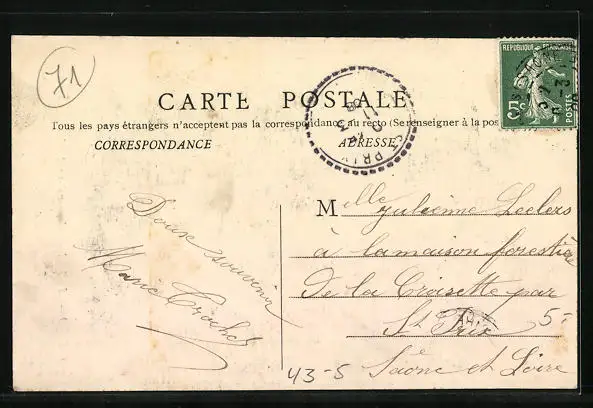 71
RÉPUBLIQUE FRANÇAISE
5c
POSTES
CARTE POSTALE
Tous les pays étrangers n'acceptent pas la correspondance au recto (Se renseigner à la pos
CORRESPONDANCE
ADRESSE
St PRIX
Doux souvenir
Marie
Melle Julienne Leclers
à la maison forestière
de la Croisette par
St Prix
5-
Saône et Loire
43-5